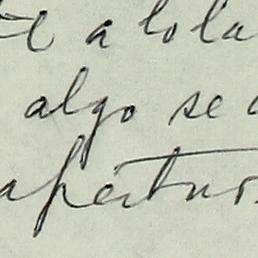 a lola
algo se
apertur